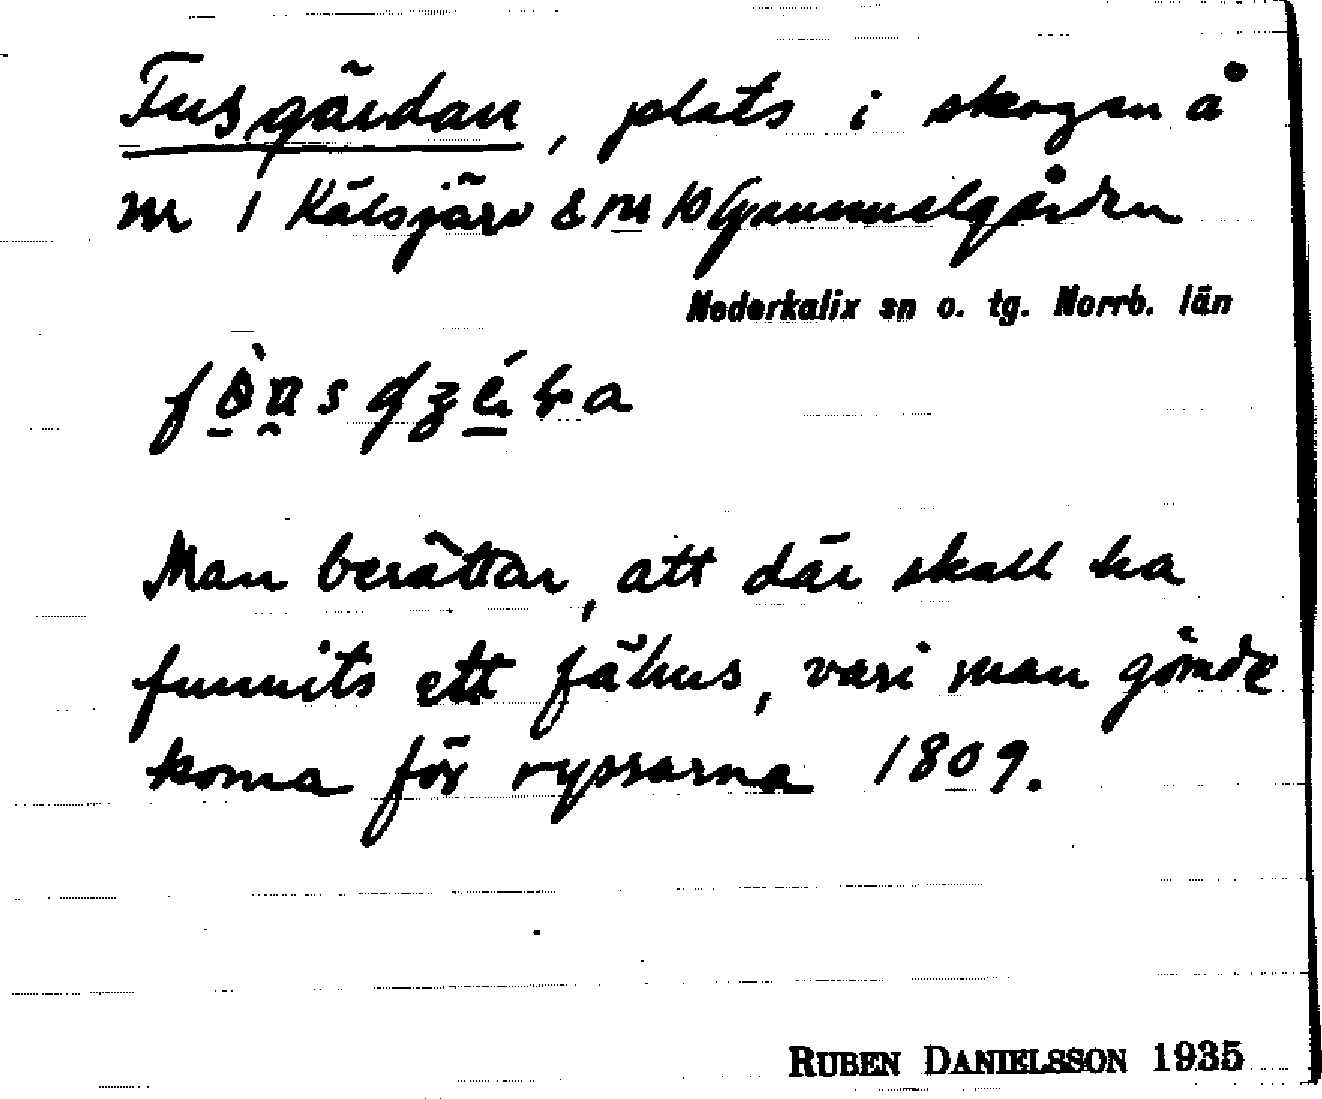 Fusgärdan, plats i skogen å
nr 1 Kälsjärv & nr 10 Gammelgården
Nederkalix sn o. tg. Norrb. län
Man berättar, att där skall ha
funnits ett fähus, vari man gömde
korna för ryssarna 1809.
RUBEN DANIELSSON 1935